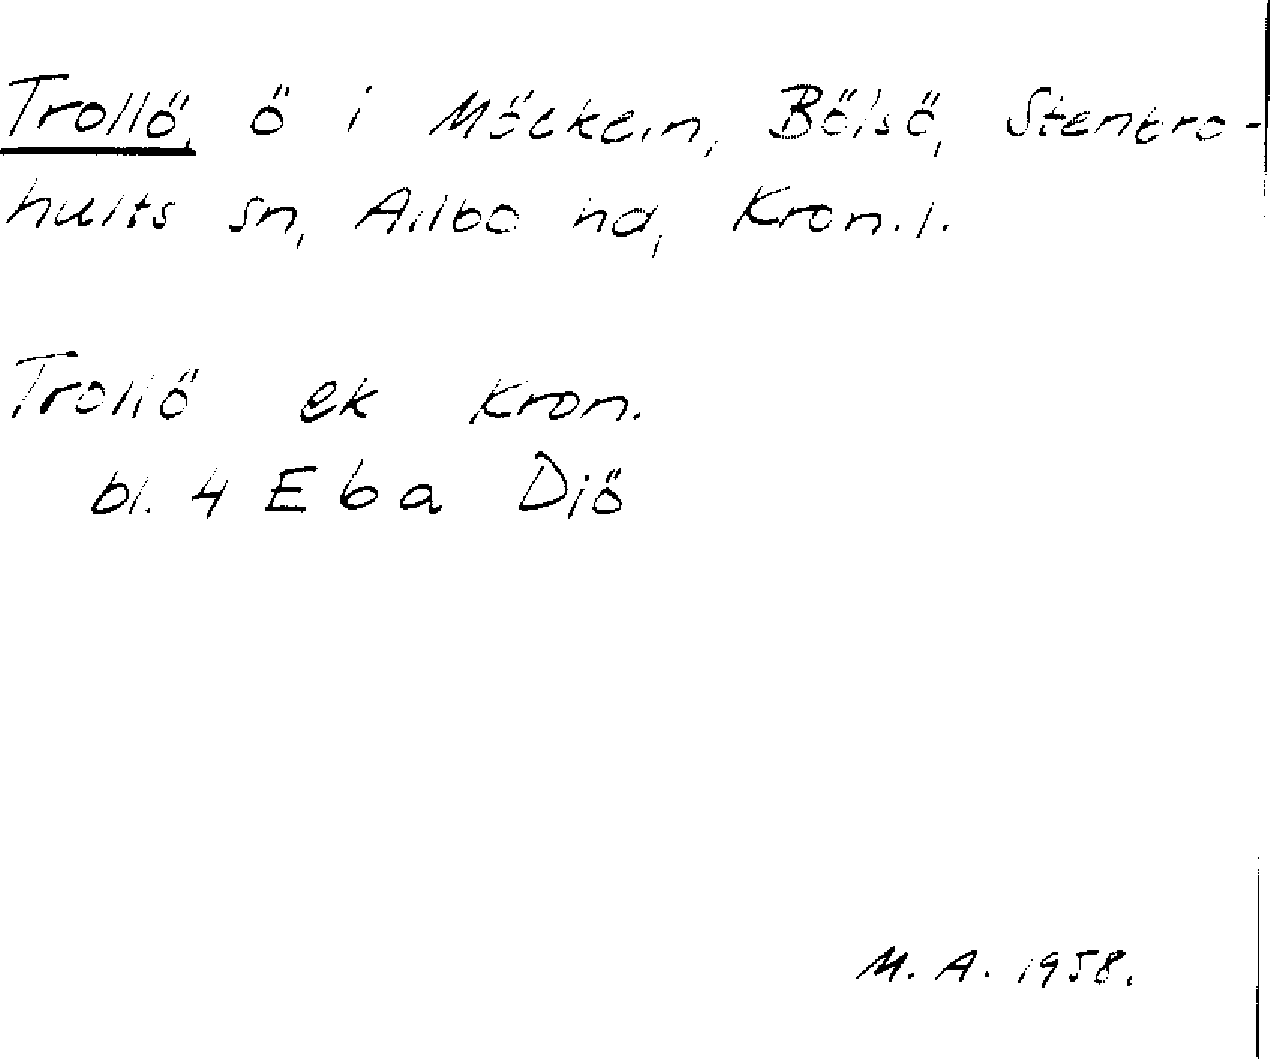 Trollö, ö i Möckeln, Bölsö, Stenbro-
hults sn, Allbo hd, Kron. l.
Trollö ek Kron.
bl. 4 E b a Diö
M. A. 1958.